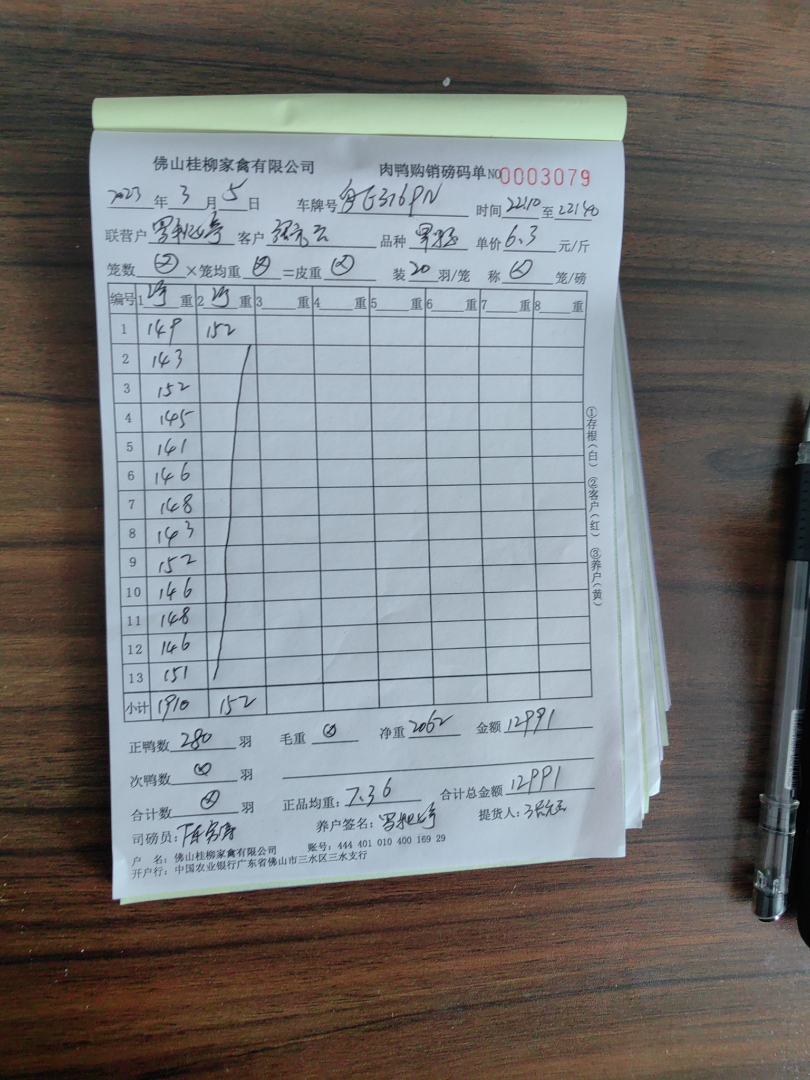 佛山桂柳家禽有限公司 肉鸭购销磅码单 NO 0003079
2023 年 3 月 5 日 车牌号 316PN 时间 22:10 至 22:40
联营户 客户 品种 单价 6.3 元/斤
笼数 ⊗ ×笼均重 ⊗ =皮重 ⊗ 装 20 羽/笼 称 ⊗ 笼/磅
编号 1 净 重 2 净 重 3 重 4 重 5 重 6 重 7 重 8 重
1 149 152
2 143
3 152
4 145
5 141
6 146
7 148
8 143
9 152
10 146
11 148
12 146
13 151
小计 1910 152
①存根(白) ②客户(红) ③养户(黄)
正鸭数 280 羽 毛重 ⊗ 净重 2062 金额 12991
次鸭数 ⊗ 羽
合计数 ⊗ 羽 正品均重: 7.36 合计总金额 12991
司磅员: 养户签名: 提货人:
户 名: 佛山桂柳家禽有限公司 账号: 444 401 010 400 169 29
开户行: 中国农业银行广东省佛山市三水区三水支行